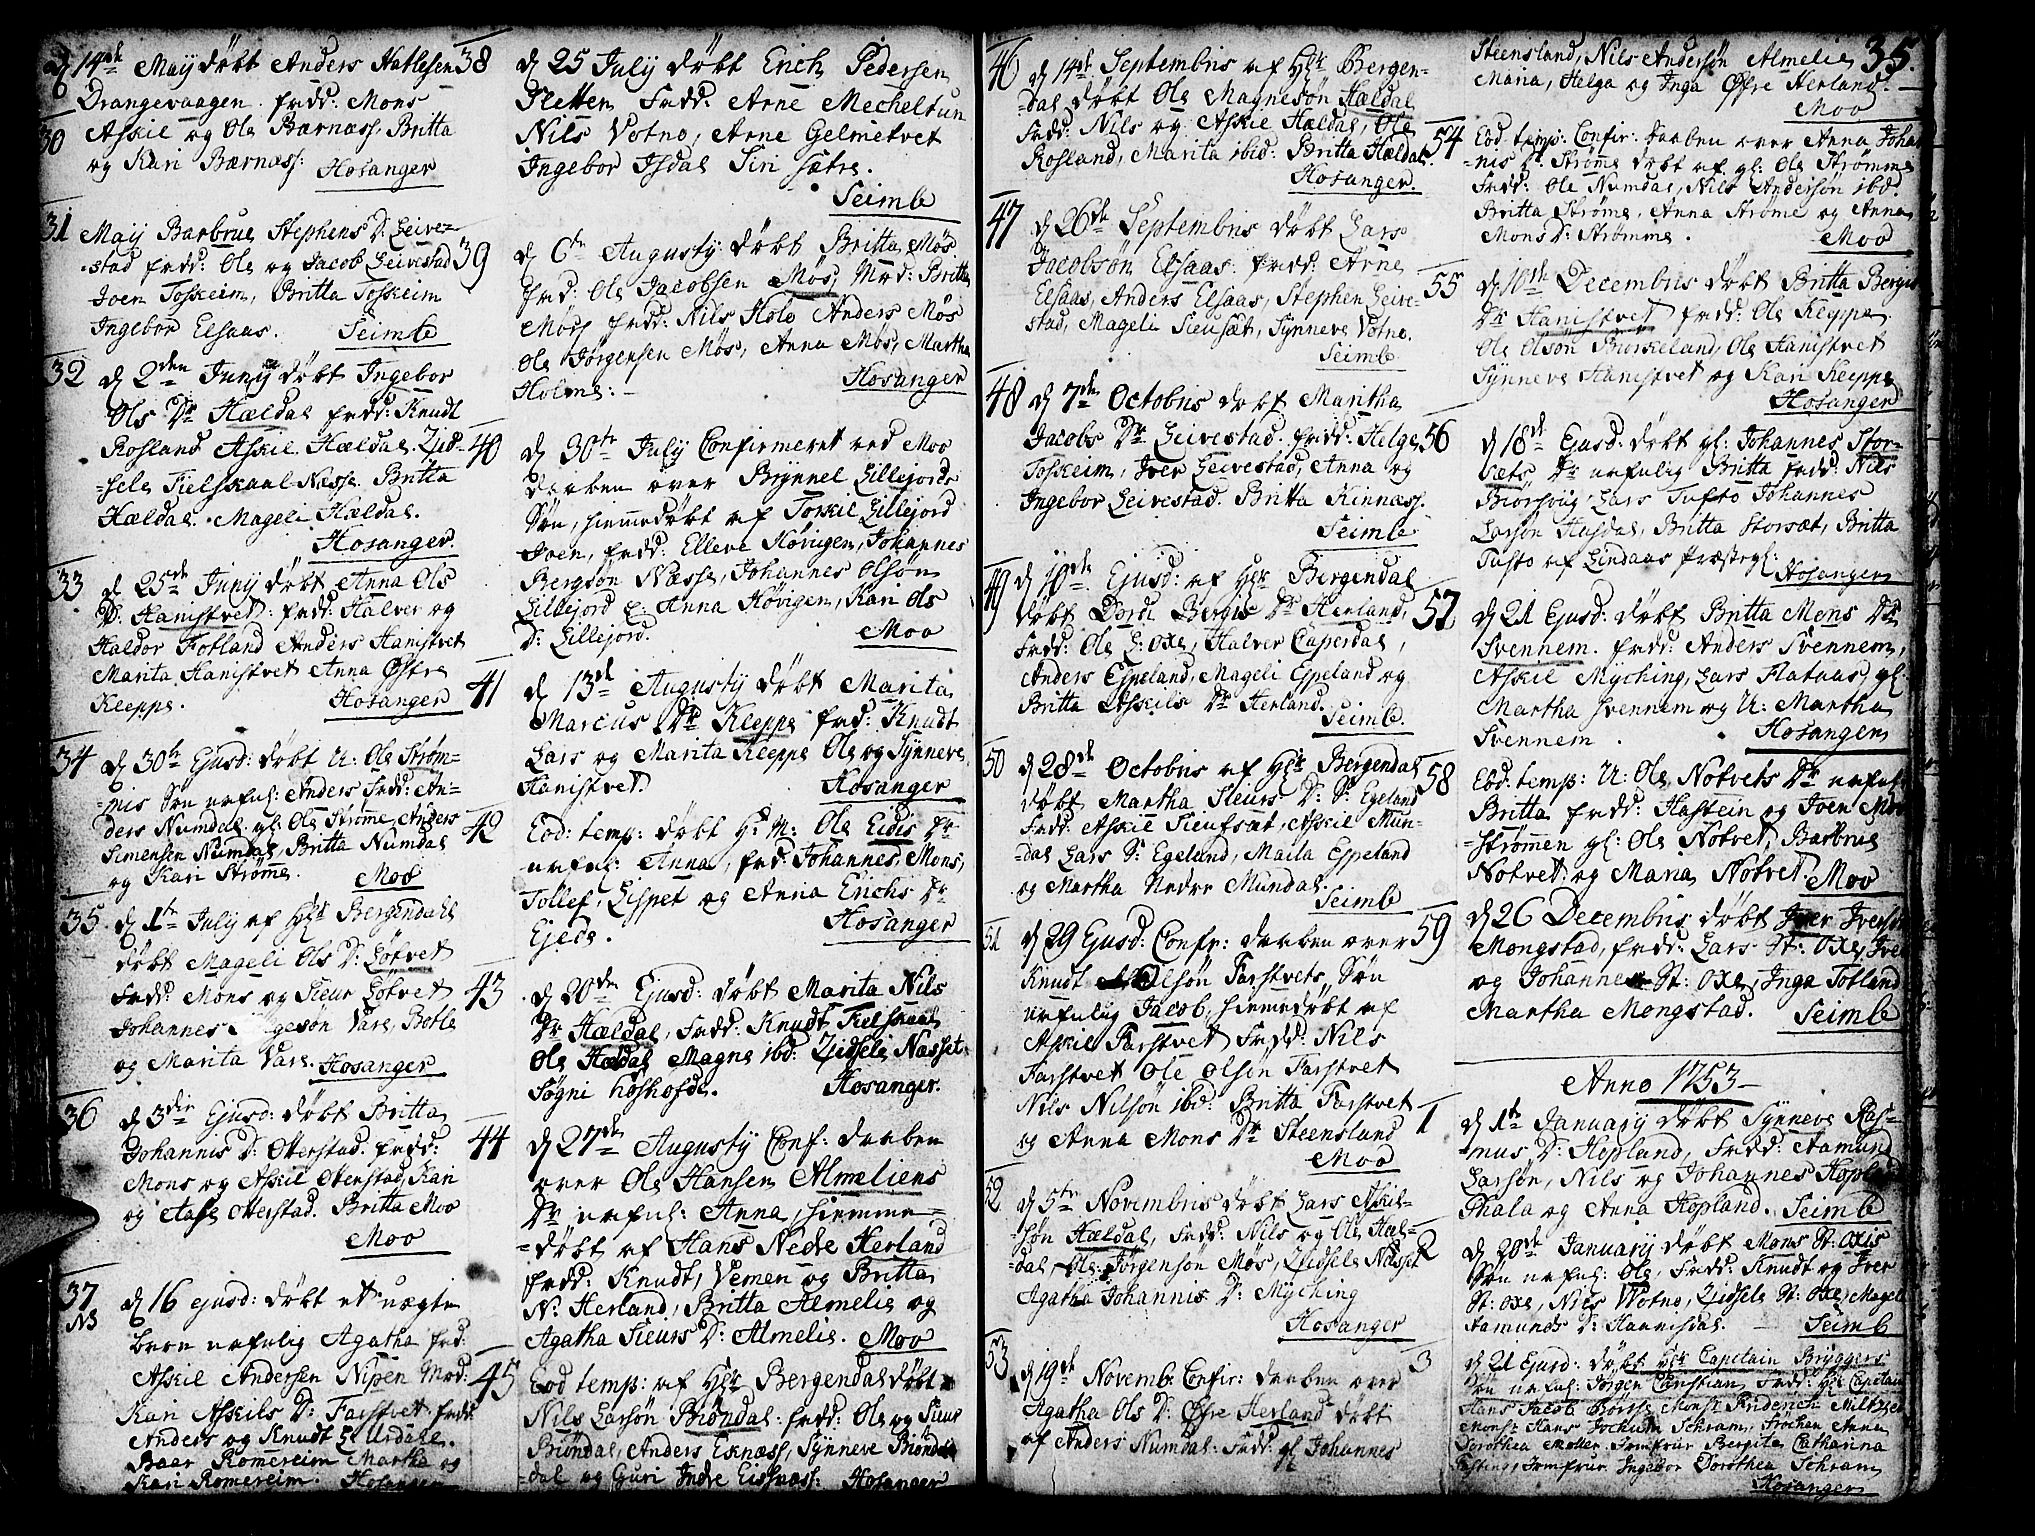 D 14de Maÿ døbt Anders Hatlesen
Drangevaagen. fadd: Mons
30
Askil og Ole Bærnæss. Britta
og Kari Bærnæss. Hosanger
31
Maÿ Barbroue Stephens D: Leive-
stad fadd: Ole og Jacob Leivestad
Joen Toskeim, Britta Toskeim
Ingebor Elsaas. Seimb
32
D 2den Junÿ døbt Ingebor
Ols Dr Hældal fadd: Knudt
Rosland Askil Hældal. Zids-
sele Fielskaal Næsse. Britta
Hældal. Mageli Hældal.
Hosanger
33
D 25de Junÿ døbt Anna Ols
D: Hanistvet: fadd: Halver og
Haldor Fotland Anders Hanistvet
Marita Hanistvet Anna Øfre
Kleppe. Hosanger
34
D 30te Ejusd: døbt U: Ole Strøm-
mis Søn nafnl: Anders fadd: An-
ders Numdal. gl: Ole Strøme, Anders
Simensen Numdal, Britta Numdal
og Kari Strøme. Moo
35
D 1te Julÿ af Hr Bergendahl
døbt Mageli Ols D: Løtvet
Fadd: Mons og Sieur Løtvet
Johannes Vare, Botle
og Marita Vare. Hosanger
36
D 3die Ejusd: døbt Britta
Johannis D: Otterstad. fadd:
Mons og Askil Otterstad, Kari
og Aase Otterstad. Britta Moo
Moo
37
NB
D 16 ejusd: døbt et uægte
barn nafnlig Agatha fad:
Askil Andersen Nipen Mod:
Kari Askils D: Farstvet. fadd:
Anders og Knudt L: Urdale.
Baar Romereim Martha og
Kari Romereim. Hosanger
38
D 25 Julÿ døbt Erich Pedersen
Sletten Fadd: Arne Mecheltun
Nils Votno, Arne Gelmetvet
Ingebor Isdal Siri Sætre.
Seimb
39
D 6te Augustÿ døbt Britta Møs
fad: Ole Jacobsen Møs, Mod: Britta
Møs fadd: Nils Holo Anders Møs
Ole Jørgensen Møs, Anna Møs, Martha
Holme: Hosanger
40
D 30te Julÿ Confirmeret ved Moo
Daaben over Brynnel Lillejords
Søn, hiemmedøbt af Torkil Lillejord
Joen, fadd: Elleve Høvigen, Johannes
Bergsøn Næsse, Johannes Olsøn
Lillejord Anna Høvigen, Kari Ols
D: Lillejord. Moo
41
D 13de Augustÿ døbt Marita
Marcus Dr Kleppe fad: Knudt
Lars og Marita Kleppe Ole og Synneve
Hanistvet. Hosanger
42
Eod: temp: døbt H: M: Ole Eidis Dr
nafnl: Anna, fad: Johannes, Mons,
Tollef, Lispet og Anna Erichs Dr
Ejede. Hosanger
43
D 20de Ejusd: døbt Marita Nils
Dr Hældal, Fadd: Knudt Fielskaal
Ole Hældal Magne ibd: Zidsele Næsset
Søgni Hoshofde. Hosanger.
44
D 27de Augustÿ Conf: daaben
over Ole Hansen Almeliens
Dr nafnl: Anna, hiemme-
døbt af Hans Nedre Herland
fadd: Knudt, Vemen og Britta
N: Herland, Britta Almelie og
Agatha Sieurs D: Almelie. Moo
45
Eod temp: af Hr Bergendal døbt
Nils Larsøn Brøndal: fadd: Ole og Sieur
Brøndal, Anders Eknæss, Synneve Brøn-
dal og Guri Indre Eisnæss: Hosanger
46
D 14de Septembris af Hr Bergen-
dal døbt Ole Magnesøn Hældal
Fadd: Nils og Askil Hældal, Ole
Rosland, Marita ibid: Britta Hældal
Hosanger.
47
D 26de Septembris døbt Lars
Jacobsøn Elsaas. fadd: Arne
Elsaas, Anders Elsaas, Stephen Leive-
stad, Mageli Sieusæt, Synneve Votno.
Seimb
48
D 7de Octobris døbt Maritha
Jacobs Dr Leivestad. fadd: Helge
Toskeim, Iver Leivestad, Anna og
Ingebor Leivestad. Britta Kinnæss.
Seimb
49
D 10de Ejusd: af Hr Bergendal
døbt Dordi Bergis Dr Herland,
Fadd: Ole L: Oxe, Halver Caperdal,
Anders Espeland, Mageli Espeland og
Britta Askils Dr Herland.
Seimb.
50
D 28de Octobris af Hr Bergendal
døbt Martha Sieurs D: S: Egeland
Fadd: Askil Sieufsæt, Askil Mun-
dal Lars S: Egeland, Maila Espeland
og Martha Nedre Mundal.
Seimb
51
D 29 Ejusd: Confr: daaben over
Knudt Olsøn Farstvets Søn
nafnlig Jacob, hiemmedøbt af
Askil Farstvet Fadd: Nils
Farstvet Ole Olsøn Farstvet
Nils Nilsøn ibd: Britta Farstvet
og Anna Mons Dr Steensland
Moo
52
D 5te Novembris døbt Lars Askil-
søn Hældal, Fadd: Nils og Ole Hæl-
dal, Ole Jørgensøn Møs, Zidsele Næsset
Agatha Johannis D: Myching
Hosanger
53
D 19de Novemb: Confir: Daaben over
Agatha Ols D: Øfre Herland døbt
af Anders Numdal: Fadd: gl Johannes
35.
Steensland, Nils Andersøn Almelie,
Maria, Helga og Inga Øfre Herland.
Moo
54
Eod temp: Confir: daaben over Anna Johan-
nis D. Strøme døbt af gl: Ole Strømme
Fadd: Ole Numdal, Nils Andersøn ibd.
Britta Strøme, Anna Strøme og Anna
Mons D: Strømme. Moo
55
D 10de Decembris døbt Britta Bergis
Dr Hanistvet fadd: Ole Kleppe.
Ole Olsøn Biørkeland, Ole Hanistvet
Synneve Hanistvet og Kari Kleppe
Hosanger
56
D 18de Ejusd: døbt gl: Johannes Stor-
sæts Dr nafnlig Britta fadd: Nils
Biørsvig Lars Tufto Johannes
Larsøn Husdal, Britta Storsæt, Britta
Tufto af Lindaas Præstegl: Hosanger
57
D 21 Ejusd: døbt Britta Mons Dr
Svennem. fadd: Anders Svennem,
Askil Myching, Lars Flataas, gl:
Martha Svennem og U: Martha
Svennem. Hosanger
58
Eod: temp: U: Ole Notvets Dr nafnl
Britta fadd: Hastein og Joen Moo
strømen gl: Ole Notvet, Barbroe
Notvet og Maria Notvet. Moo
59
D 26 Decembris døbt Iver Iversøn
Mongstad, fadd: Lars St: Oxe, Iver
og Johannes St: Oxe, Inga Totland
Martha Mongstad. Seimb
Anno 1753
1
D 1te Januarÿ døbt Synneve Ras-
mus D: Hopland, Fadd: Aamund
Larsøn, Nils og Johannes Hopland
Thala og Anna Hopland. Seimb
2
D 20de Januarÿ døbt Mons St: Oxis
Søn nafnl: Ole, Fadd: Knudt og Iver
St: Oxe, Nils Wotno, Zidsele St: Oxe, Mageli
Aamunds D: Hannisdal. Seimb
3
D 21 Ejusd: døbt Hr Capetain Bryggers
Søn nafnl: Jørgen Christian, Fadd: Hr Capetain
Hans Jacob Børsse Monsr Friderich Miltzow
Monsr Hans Jochum Schram, Jomfrue Anna
Dorothea Møller Jomfrue Bergite Catharina
Jomfrue Ingebor Dorothea Schram
Hosanger